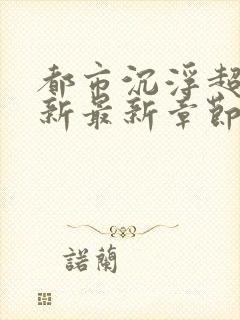 都市沉浮超
新最新章節
諾蘭